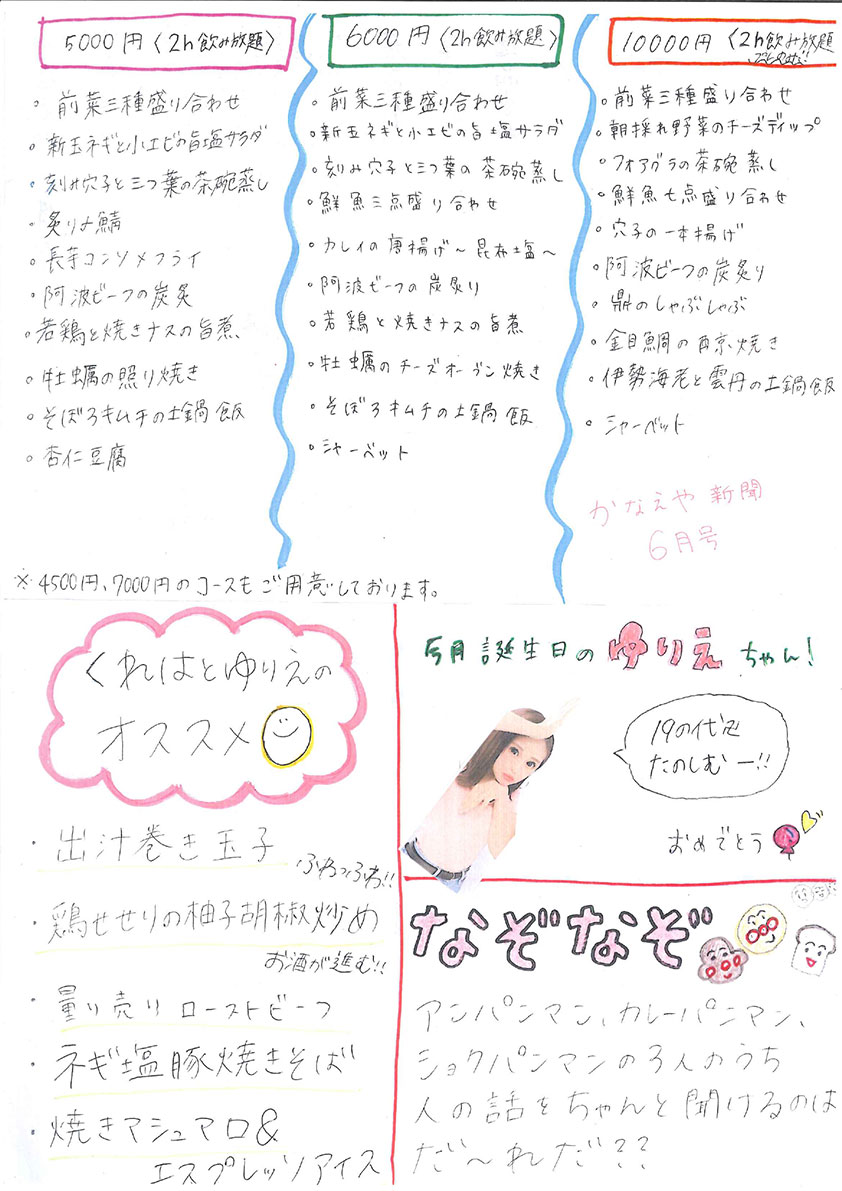 5000円〈2h飲み放題〉
・前菜三種盛り合わせ
・新玉ネギと小エビの旨塩サラダ
・刻み穴子と三つ葉の茶碗蒸し
・炙り〆鯖
・長芋コンソメフライ
・阿波ビーフの炭炙
・若鶏と焼きナスの旨煮
・牡蠣の照り焼き
・そぼろキムチの土鍋飯
・杏仁豆腐
6000円〈2h飲み放題〉
・前菜三種盛り合わせ
・新玉ネギと小エビの旨塩サラダ
・刻み穴子と三つ葉の茶碗蒸し
・鮮魚三点盛り合わせ
・カレイの唐揚げ〜昆布塩〜
・阿波ビーフの炭炙り
・若鶏と焼きナスの旨煮
・牡蠣のチーズオーブン焼き
・そぼろキムチの土鍋飯
・シャーベット
10000円〈2h飲み放題
・前菜三種盛り合わせ
・朝採れ野菜のチーズディップ
・フォアグラの茶碗蒸し
・鮮魚七点盛り合わせ
・穴子の一本揚げ
・阿波ビーフの炭炙り
・鼎のしゃぶしゃぶ
・金目鯛の西京焼き
・伊勢海老と雲丹の土鍋飯
・シャーベット
かなえや新聞
6月号
※4500円、7000円のコースもご用意しております。
くれはとゆりえの
オススメ
・出汁巻き玉子
ふわっふわ!!
・鶏せせりの柚子胡椒炒め
お酒が進む!!
・量り売りローストビーフ
・ネギ塩豚焼きそば
・焼きマシュマロ&
エスプレッソアイス
5月誕生日のゆりえちゃん!
19の代も
たのしむー!!
おめでとう
なぞなぞ
アンパンマン、カレーパンマン、
ショクパンマンの3人のうち
人の話をちゃんと聞けるのは
だ〜れだ??